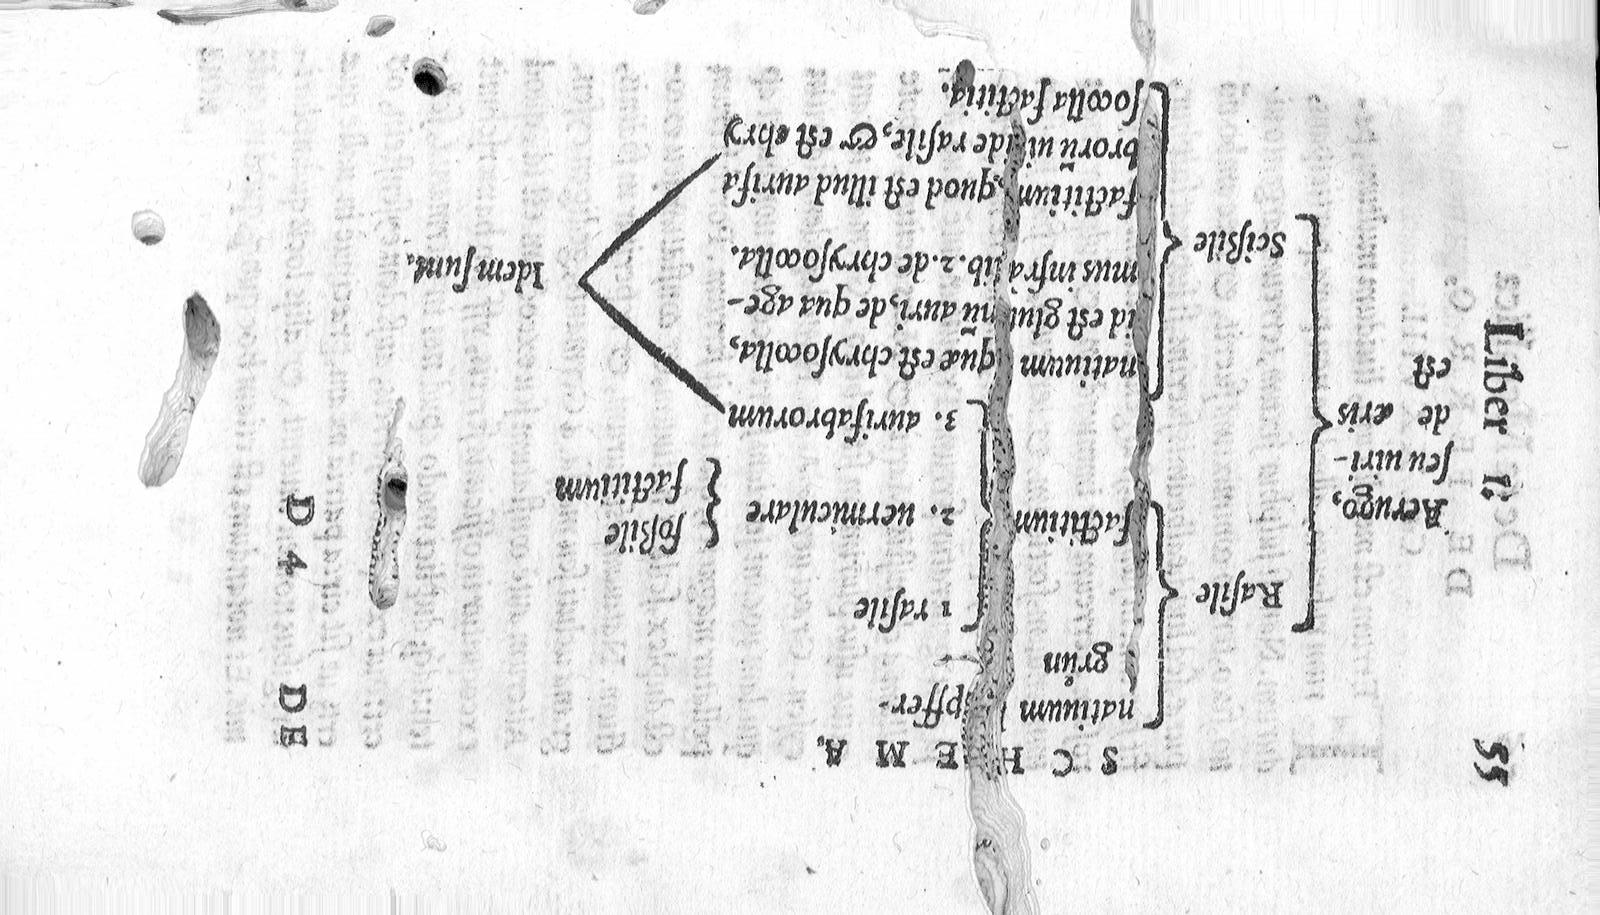 55
Liber I.
S C H E M A.
Aerugo,
seu uiri-
de æris
est
Rasile
natiuum pffer-
grůn
factitium
1 rasile
2. uermiculare
foßile
factitium
3. aurifabrorum
Scißile
natiuum quæ est chrysocolla,
id est glutinū auri, de qua age-
mus infrà lib. 2. de chrysocolla.
factitium, quod est illud aurifa
brorū uiride rasile, & est chry
socolla factitia.
Idem sunt.
D 4
DE